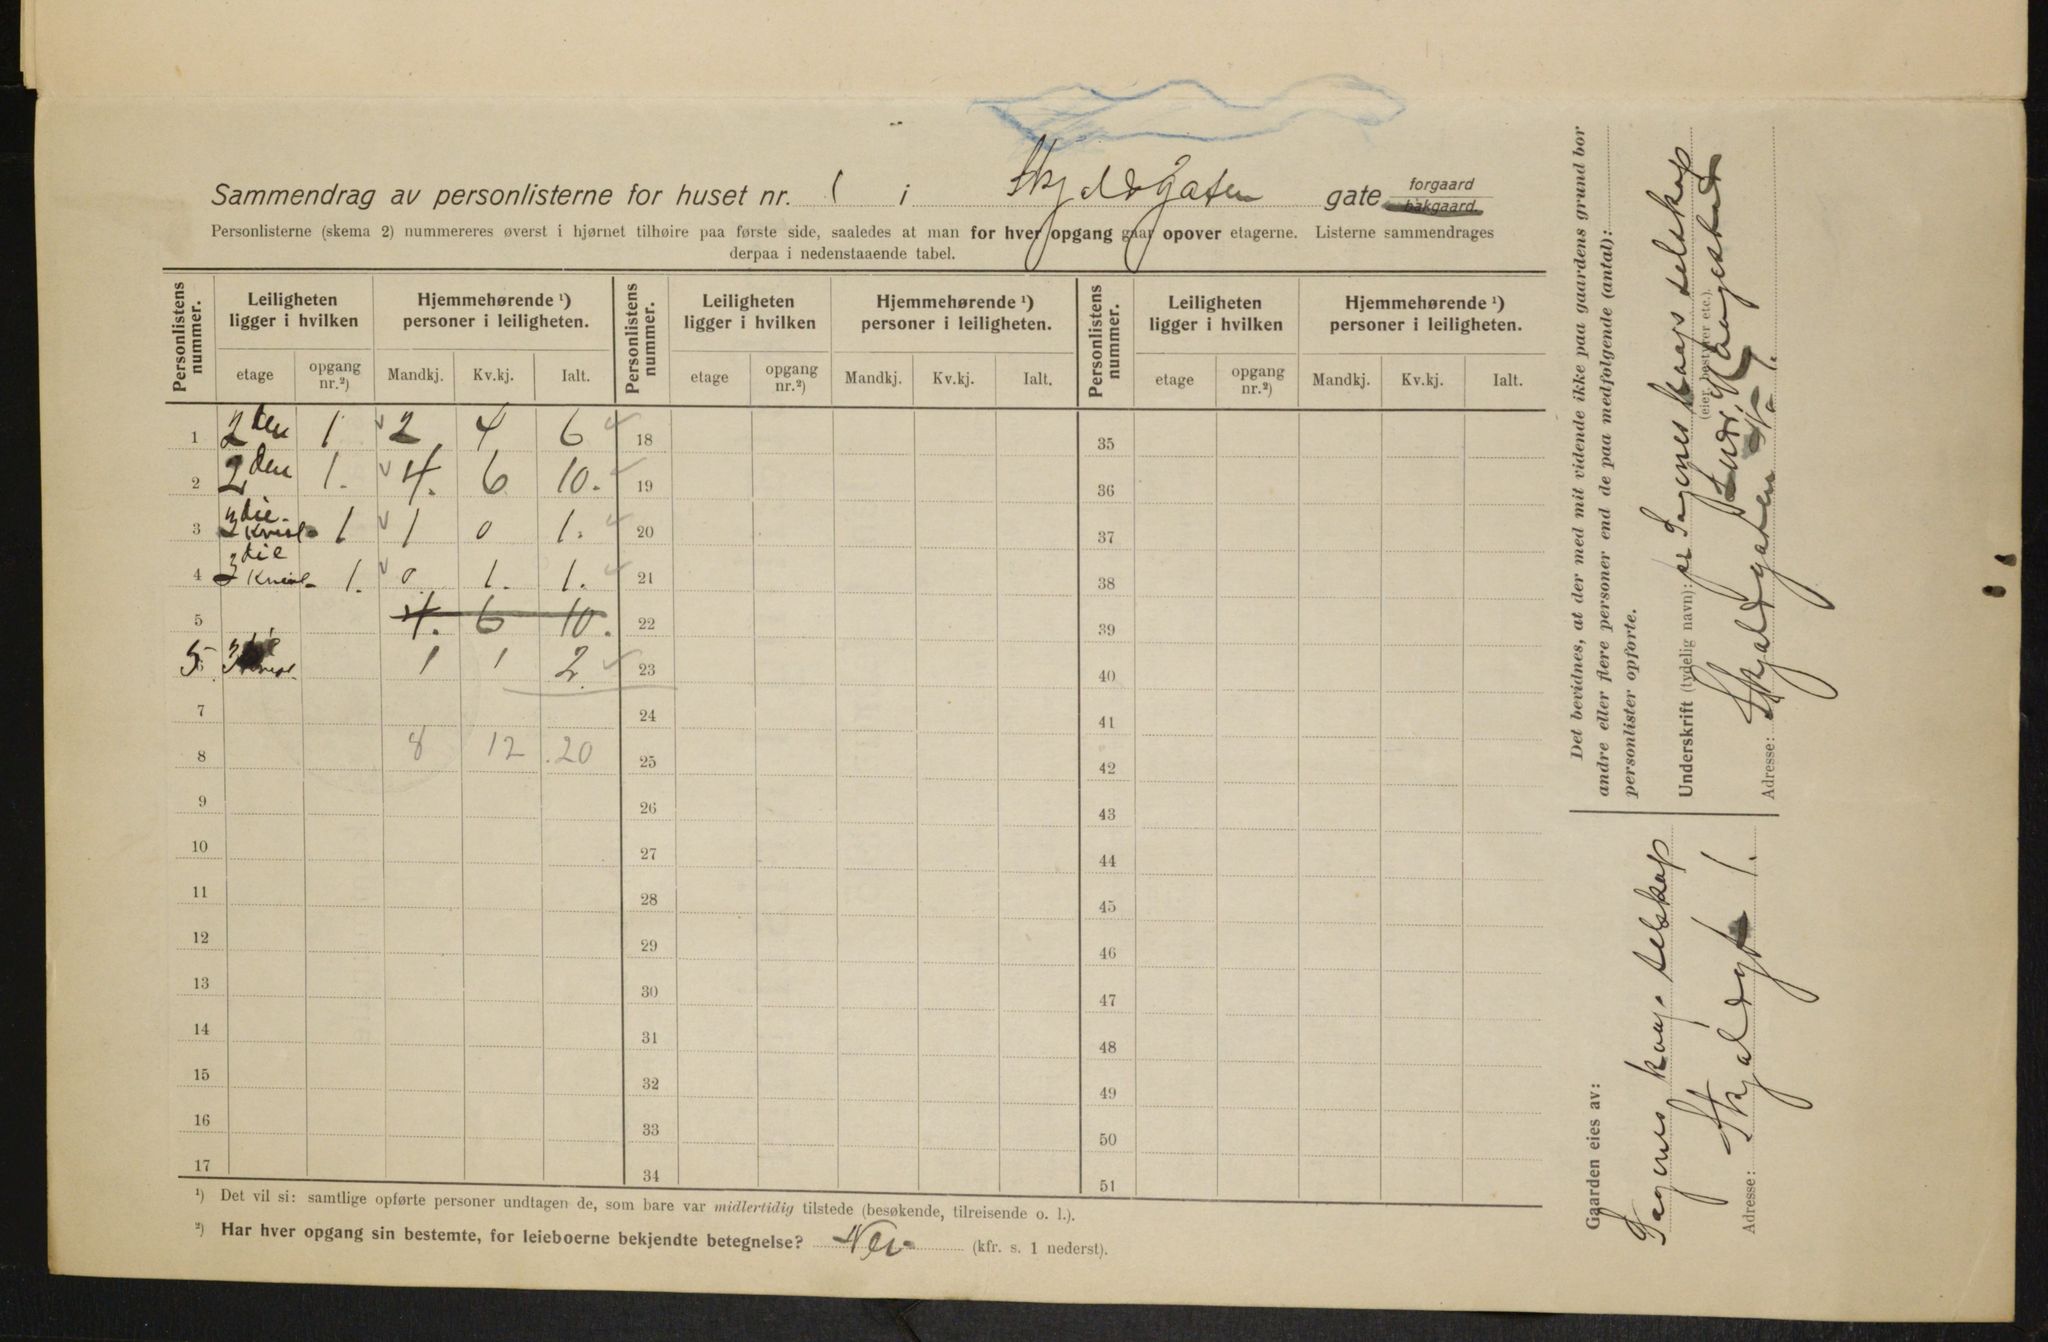 Sammendrag av personlisterne for huset nr. 1 i Skjoldsgaten gate forgaard bakgaard.
Personlisterne (skema 2) nummereres øverst i hjørnet tilhøire paa første side, saaledes at man for hver opgang gaar opover etagerne. Listerne sammendrages
derpaa i nedenstaaende tabel.
Personlistens nummer. Leiligheten ligger i hvilken Hjemmehørende ¹) personer i leiligheten. Personlistens nummer. Leiligheten ligger i hvilken Hjemmehørende ¹) personer i leiligheten. Personlistens nummer. Leiligheten ligger i hvilken Hjemmehørende ¹) personer i leiligheten.
etage opgang nr.²) Mandkj. Kv.kj. Ialt. etage opgang nr.²) Mandkj. Kv.kj. Ialt. etage opgang nr.²) Mandkj. Kv.kj. Ialt.
1 2den 1 2 4 6 18 35
2 2den 1. 4. 6 10. 19 36
3 3die Kvist 1 1 0 1. 20 37
4 3die Kvist 1. 0 1. 1. 21 38
5 4. 6 10. 22 39
5 3die Kvist. 1 1 2 23 40
7 24 41
8 8 12 20 25 42
9 26 43
10 27 44
11 28 45
12 29 46
13 30 47
14 31 48
15 32 49
16 33 50
17 34 51
¹) Det vil si: samtlige opførte personer undtagen de, som bare var midlertidig tilstede (besøkende, tilreisende o. l.).
²) Har hver opgang sin bestemte, for leieboerne bekjendte betegnelse? Nei (kfr. s. 1 nederst).
Det bevidnes, at der med mit vidende ikke paa gaardens grund bor
andre eller flere personer end de paa medfølgende (antal):
personlister opførte.
Underskrift (tydelig navn): Sagenes selskap
(eier, bestyrer etc.).
Adresse: Skjaldgaten
Gaarden eies av:
Sagenes selskap
Adresse: Skjaldgt 1.